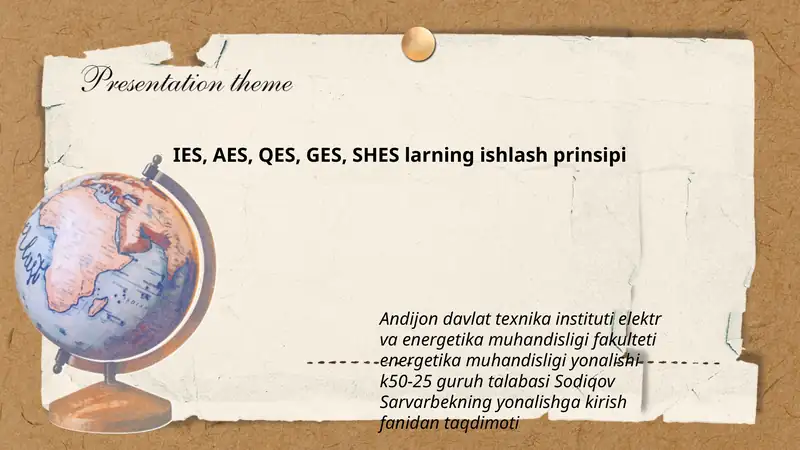 Presentation theme
IES, AES, QES, GES, SHES larning ishlash prinsipi
Andijon davlat texnika instituti elektr
va energetika muhandisligi fakulteti
energetika muhandisligi yonalishi
k50-25 guruh talabasi Sodiqov
Sarvarbekning yonalishga kirish
fanidan taqdimoti